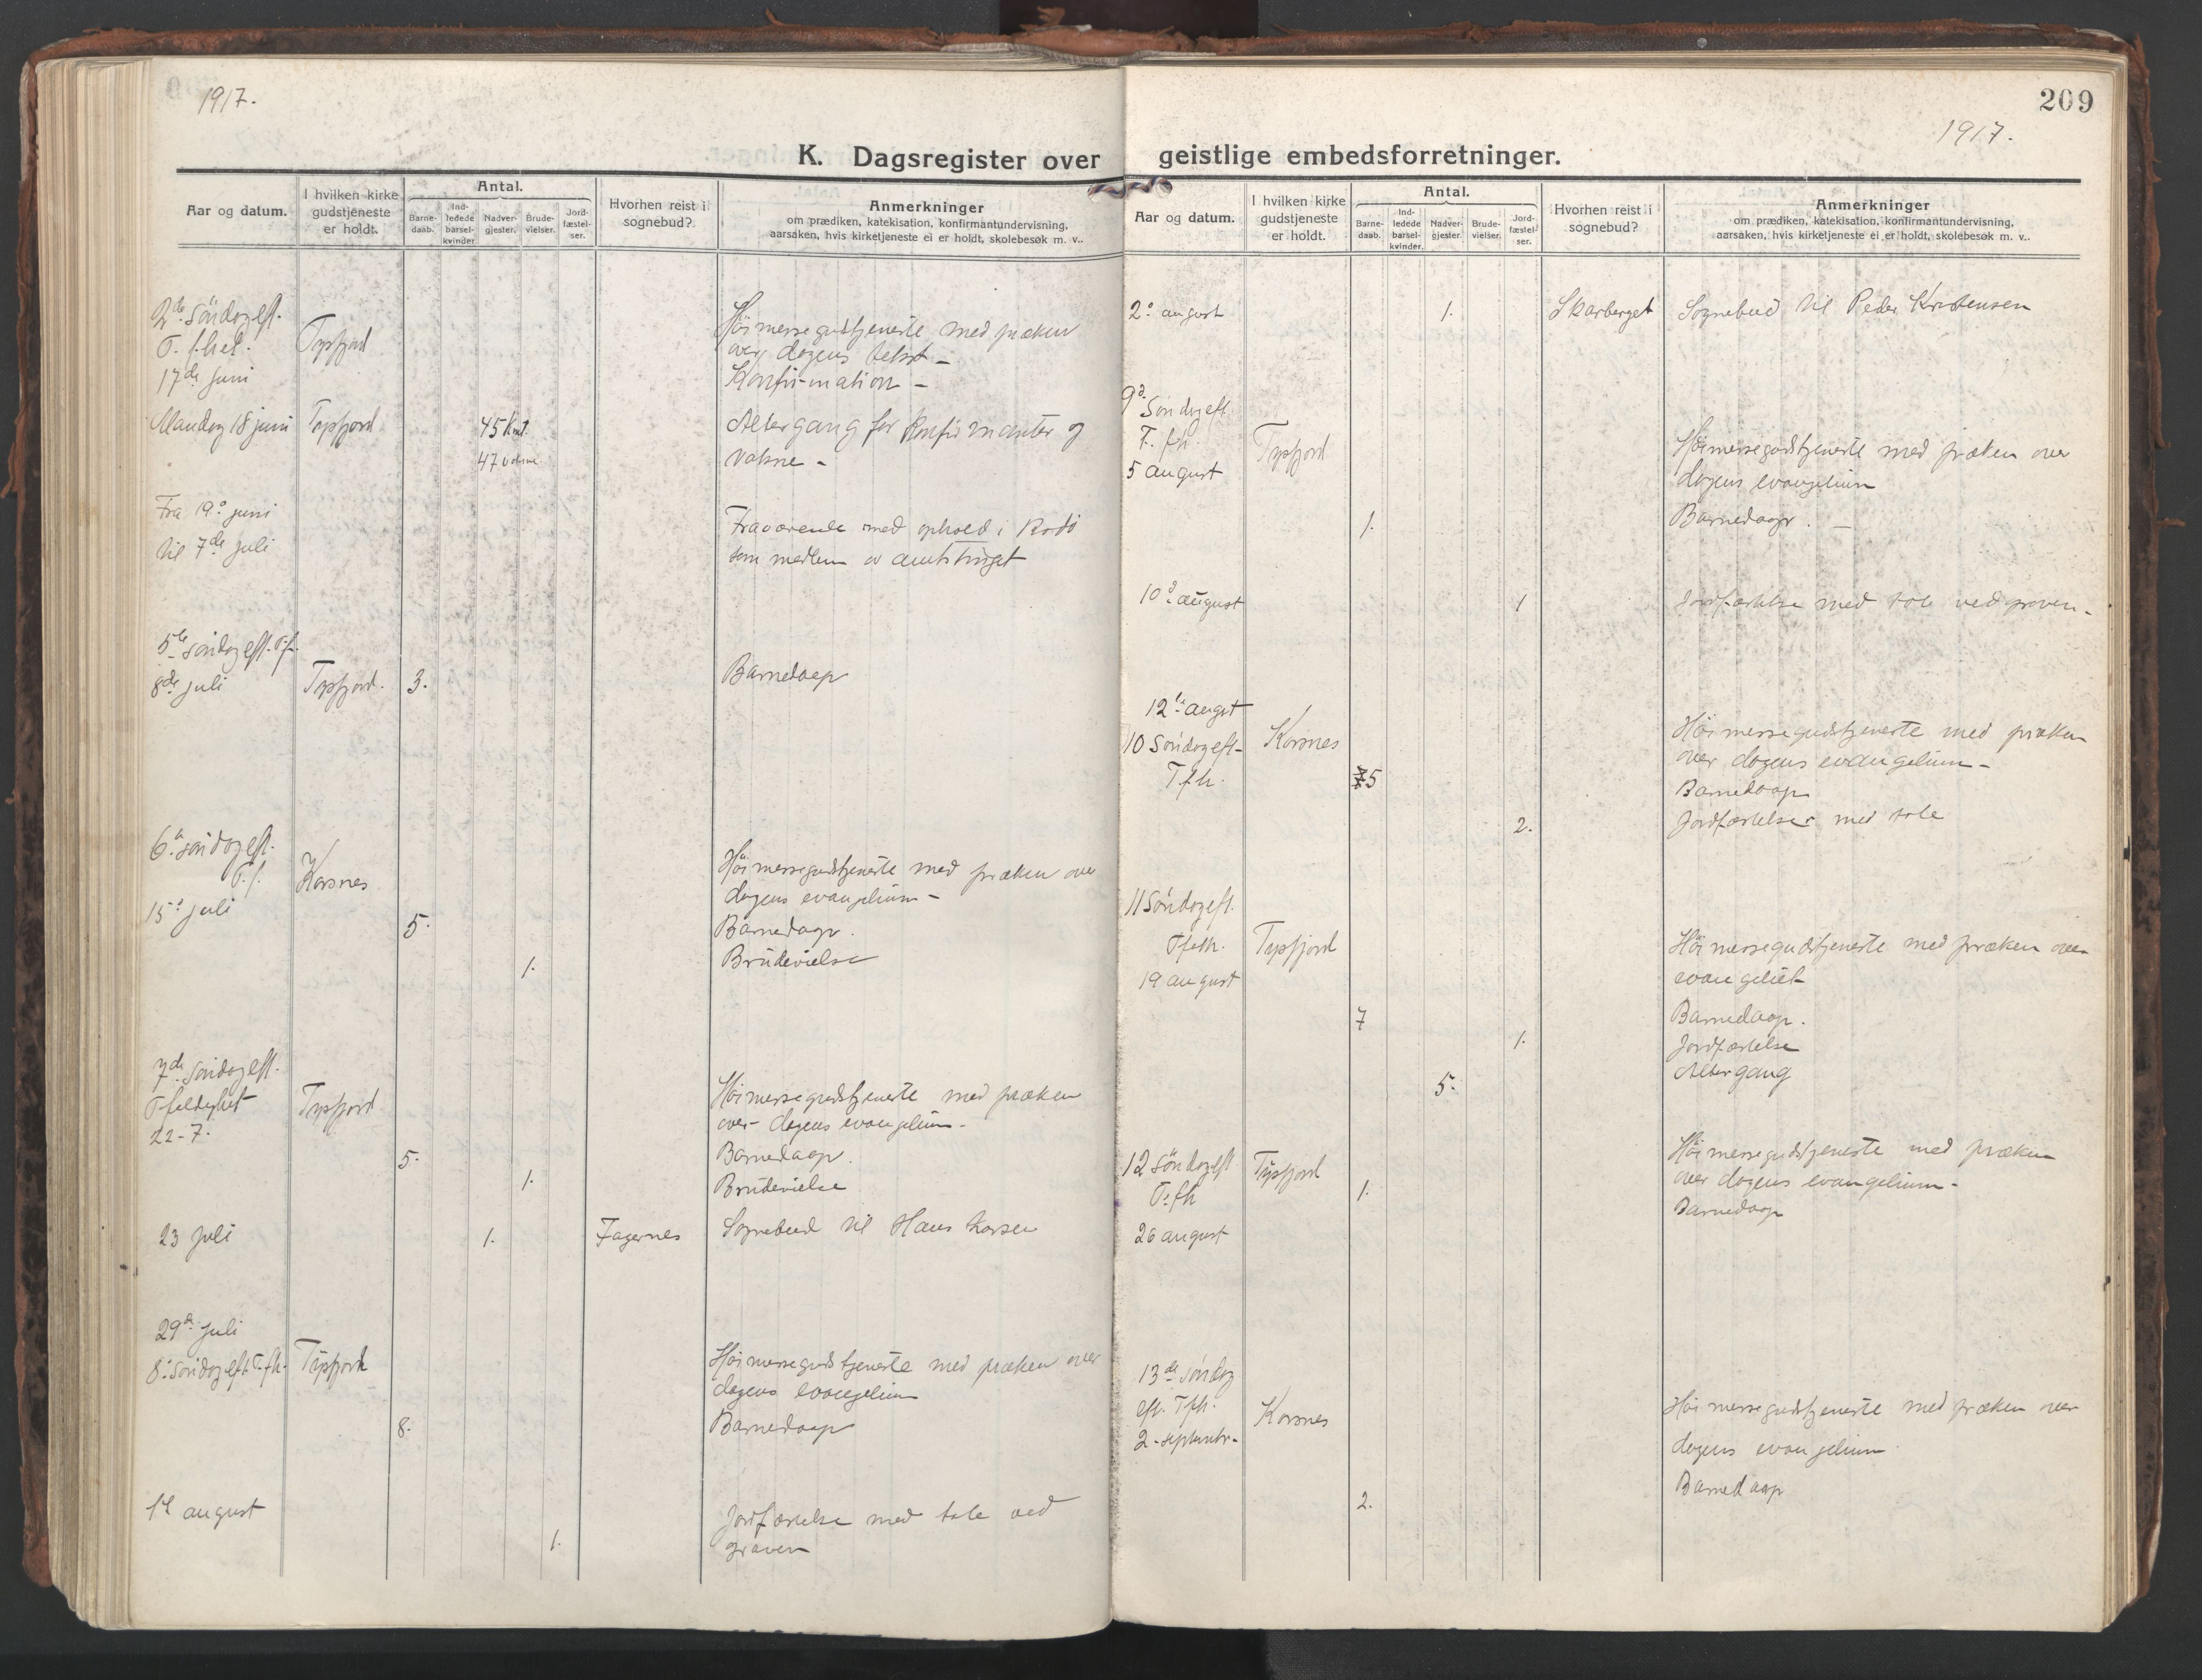 1917.
K. Dagsregister over
Aar og datum.
I hvilken kirke gudstjeneste er holdt.
Antal.
Barne-daab.
Ind-ledede barsel-kvinder
Nadver-gjester.
Brude-vielser.
Jord-fæstel-ser.
Hvorhen reist i sognebud?
Anmerkninger
om prædiken, katekisation, konfirmantundervisning,
aarsaken, hvis kirketjeneste ei er holdt, skolebesøk m. v..
2de Söndag eft.
T. f.het. Tysfjord
17de juni
Höimessegudstjeneste med præken
over dagens tekst -
Konfirmation -
Mandag 18 juni Tysfjord 45 Knf. Altergang for Konfirmanter og
47 voksne voksne -
Fra 19de juni Fraværende med ophold i Bodö
til 7de juli som medlem av amtstinget
5te söndag eft. T.f.
8de juli Tysfjord. 3. Barnedaap
6te söndag eft.
T.f. Korsnes Höimessegudstjeneste med præken over
15de juli dagens evangelium -
5. Barnedaap.
1. Brudevielse
7de söndag eft.
Tfoldighet Tysfjord Höimessegudstjeneste med præken
22-7. over dagens evangelium -
5. Barnedaap.
1. Brudevielse
23 juli 1. Fagernes Sognebud til Hans Larsen
29de juli
8. söndag eft. T.fh. Tysfjord Höimessegudstjeneste med præken over
dagens evangelium
8. Barnedaap
1ste august Jordfæstelse med tale ved
1. graven
209
1917.
geistlige embedsforretninger.
Aar og datum.
I hvilken kirke gudstjeneste er holdt.
Antal.
Barne-daab.
Ind-ledede barsel-kvinder.
Nadver-gjester.
Brude-vielser.
Jord-fæstel-ser.
Hvorhen reist i sognebud?
Anmerkninger
om prædiken, katekisation, konfirmantundervisning,
aarsaken, hvis kirketjeneste ei er holdt, skolebesøk m. v..
2de august 1. Skarberget Sognebud til Peder Kristensen
9de Söndag eft.
T. fh. Tysfjord Höimessegudstjeneste med præken over
5 august dagens evangelium
1. Barnedaap. -
10de august 1 Jordfæstelse med tale ved graven -
12te augst
10 Söndag eft- Korsnes Höimessegudstjeneste med præken
T.fh. over dagens evangelium -
5 Barnedaap
2. Jordfæstelser med tale
11 Söndag eft.
Tfoh. Tysfjord Höimessegudstjeneste med præken over
19 august evangeliet
7 Barnedaap.
1. Jordfæstelse
5. Altergang
12 Söndag eft Tysfjord Höimessegudstjeneste med præken
T. fh 1. over dagens evangelium -
26 august Barnedaap
13de söndag
eft. Tfh. Korsnes Höimessegudstjeneste med præken over
2-septembr- dagens evangelium
2. Barnedaap